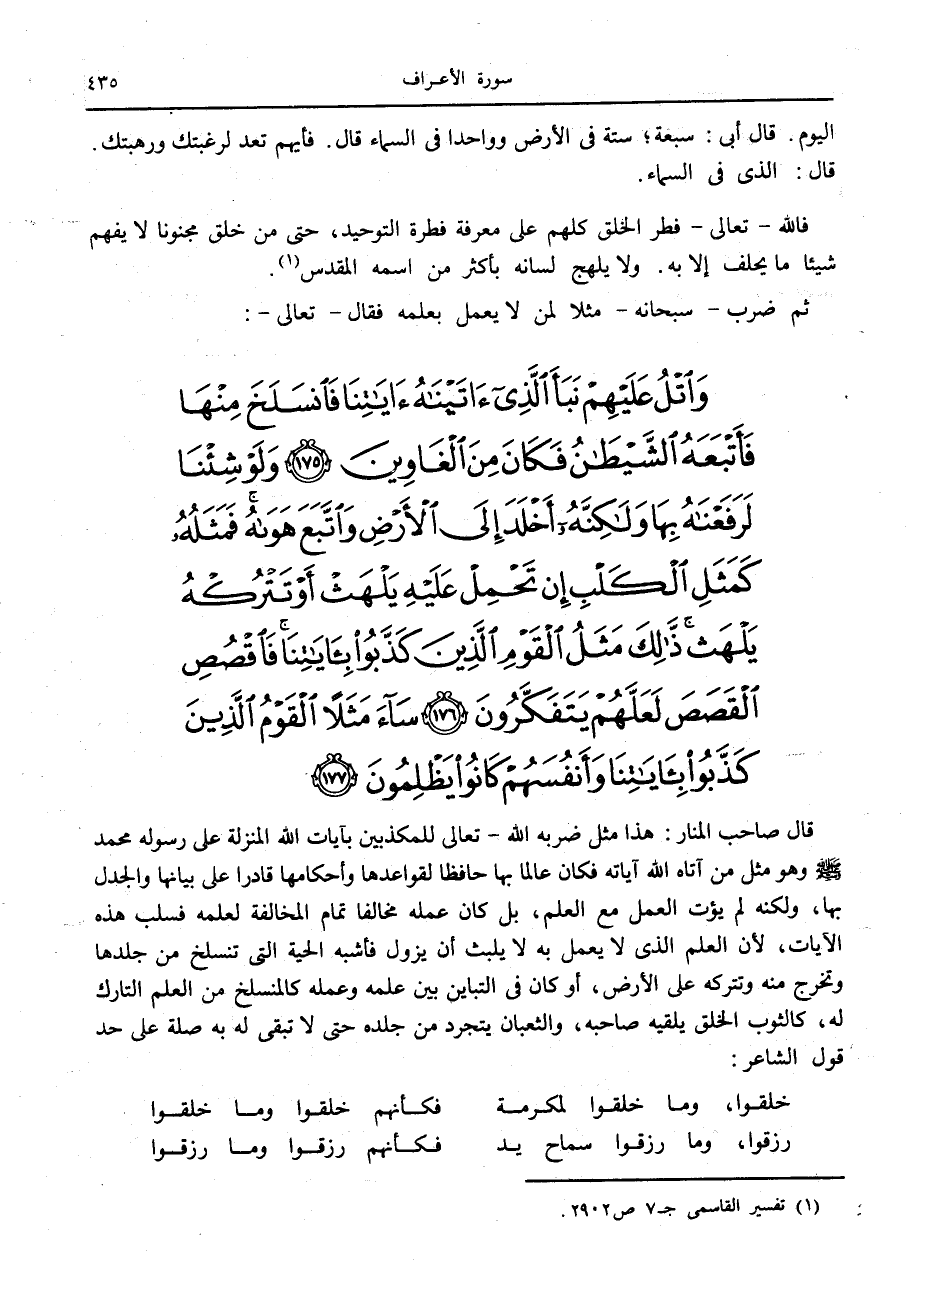 سورة الأعراف ٤٣٥
اليوم. قال أبى : سبعة؛ ستة فى الأرض وواحدا فى السماء قال. فأيهم تعد لرغبتك ورهبتك.
قال : الذى فى السماء.
فالله – تعالى – فطر الخلق كلهم على معرفة فطرة التوحيد، حتى من خلق مجنونا لا يفهم
شيئا ما يحلف إلا به. ولا يلهج لسانه بأكثر من اسمه المقدس(١).
ثم ضرب – سبحانه – مثلا لمن لا يعمل بعلمه فقال – تعالى – :
وَٱتْلُ عَلَيْهِمْ نَبَأَ ٱلَّذِىٓ ءَاتَيْنَٰهُ ءَايَٰتِنَا فَٱنسَلَخَ مِنْهَا
فَأَتْبَعَهُ ٱلشَّيْطَٰنُ فَكَانَ مِنَ ٱلْغَاوِينَ ١٧٥ وَلَوْ شِئْنَا
لَرَفَعْنَٰهُ بِهَا وَلَٰكِنَّهُۥٓ أَخْلَدَ إِلَى ٱلْأَرْضِ وَٱتَّبَعَ هَوَىٰهُ ۚ فَمَثَلُهُۥ
كَمَثَلِ ٱلْكَلْبِ إِن تَحْمِلْ عَلَيْهِ يَلْهَثْ أَوْ تَتْرُكْهُ
يَلْهَث ۚ ذَّٰلِكَ مَثَلُ ٱلْقَوْمِ ٱلَّذِينَ كَذَّبُوا۟ بِـَٔايَٰتِنَا ۚ فَٱقْصُصِ
ٱلْقَصَصَ لَعَلَّهُمْ يَتَفَكَّرُونَ ١٧٦ سَآءَ مَثَلًا ٱلْقَوْمُ ٱلَّذِينَ
كَذَّبُوا۟ بِـَٔايَٰتِنَا وَأَنفُسَهُمْ كَانُوا۟ يَظْلِمُونَ ١٧٧
قال صاحب المنار : هذا مثل ضربه الله – تعالى للمكذبين بآيات الله المنزلة على رسوله محمد
ﷺ وهو مثل من آتاه الله آياته فكان عالما بها حافظا لقواعدها وأحكامها قادرا على بيانها والجدل
بها، ولكنه لم يؤت العمل مع العلم، بل كان عمله مخالفا تمام المخالفة لعلمه فسلب هذه
الآيات، لأن العلم الذى لا يعمل به لا يلبث أن يزول فأشبه الحية التى تنسلخ من جلدها
وتخرج منه وتتركه على الأرض، أو كان فى التباين بين علمه وعمله كالمنسلخ من العلم التارك
له، كالثوب الخلق يلقيه صاحبه، والثعبان يتجرد من جلده حتى لا تبقى له به صلة على حد
قول الشاعر :
خلقوا، وما خلقوا لمكرمة فكأنهم خلقوا وما خلقوا
رزقوا، وما رزقوا سماح يد فكأنهم رزقوا وما رزقوا
(١) تفسير القاسمى جـ٧ ص٢٩٠٢.